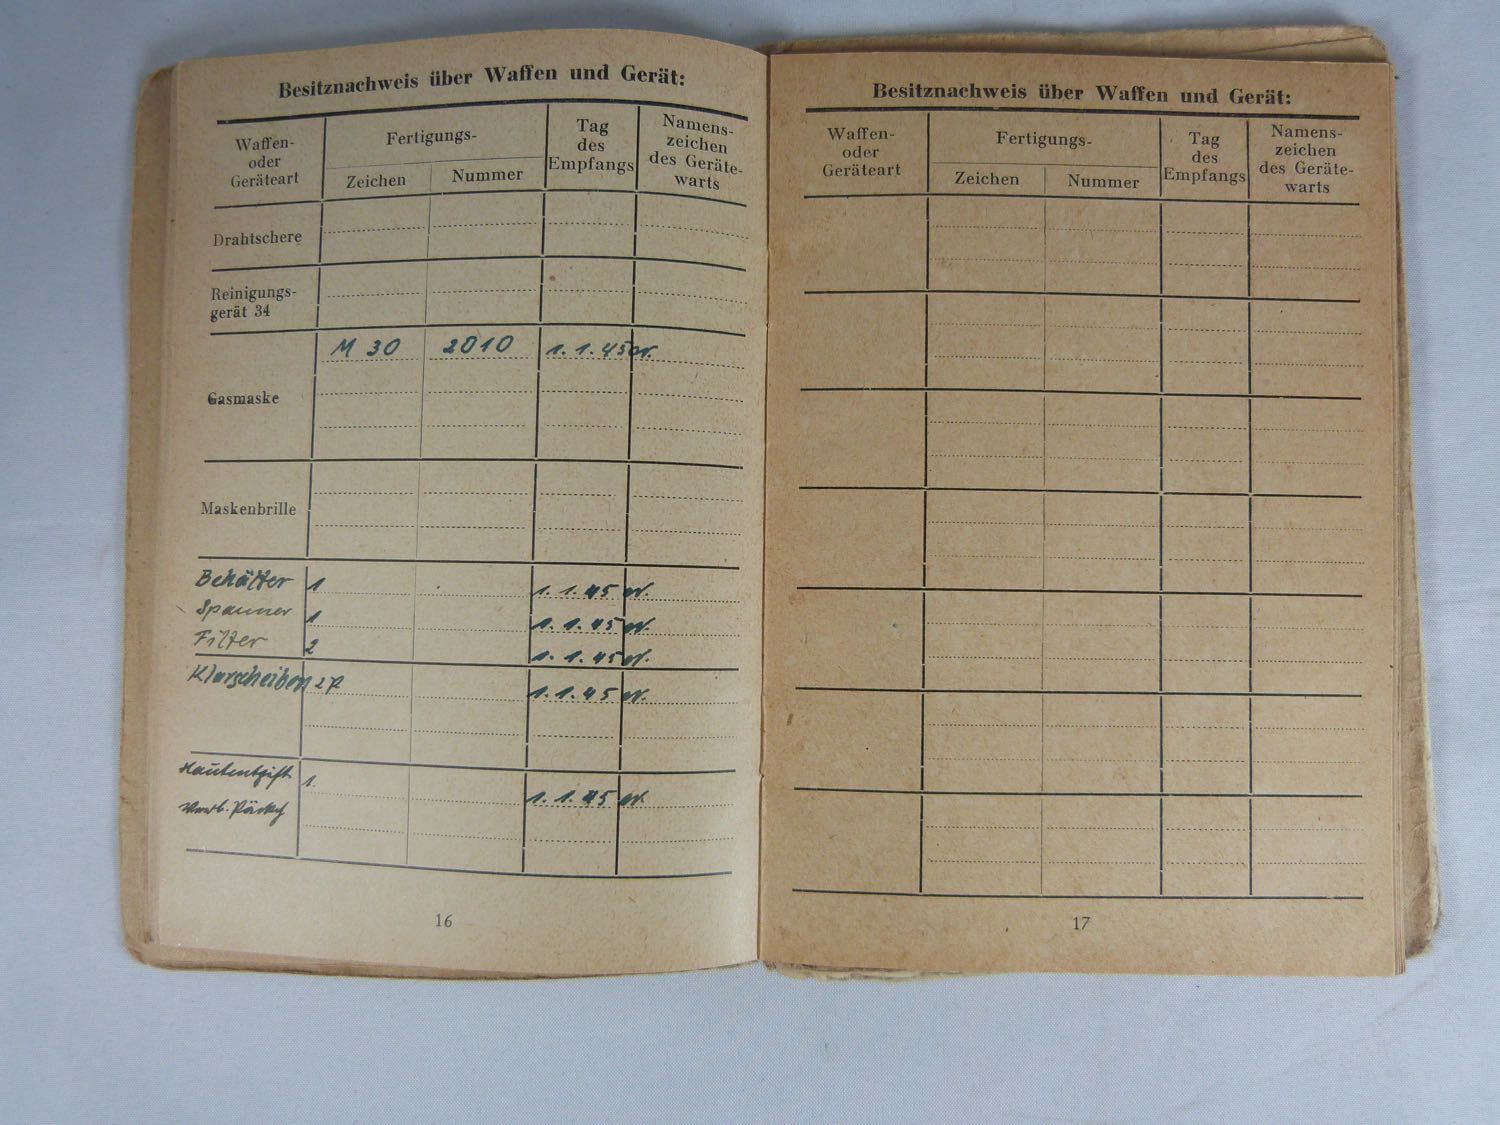 Besitznachweis über Waffen und Gerät:
Waffen-
oder
Geräteart
Fertigungs-
Zeichen
Nummer
Tag
des
Empfangs
Namens-
zeichen
des Geräte-
warts
Drahtschere
Reinigungs-
gerät 34
Gasmaske
M 30 2010 1.1.45
Maskenbrille
Behälter 1 1.1.45
Spanner 1 1.1.45
Filter 2 1.1.45
Klarscheiben 1.1.45
Hautentgift 1.
1.1.45
16
Besitznachweis über Waffen und Gerät:
Waffen-
oder
Geräteart
Fertigungs-
Zeichen
Nummer
Tag
des
Empfangs
Namens-
zeichen
des Geräte-
warts
17